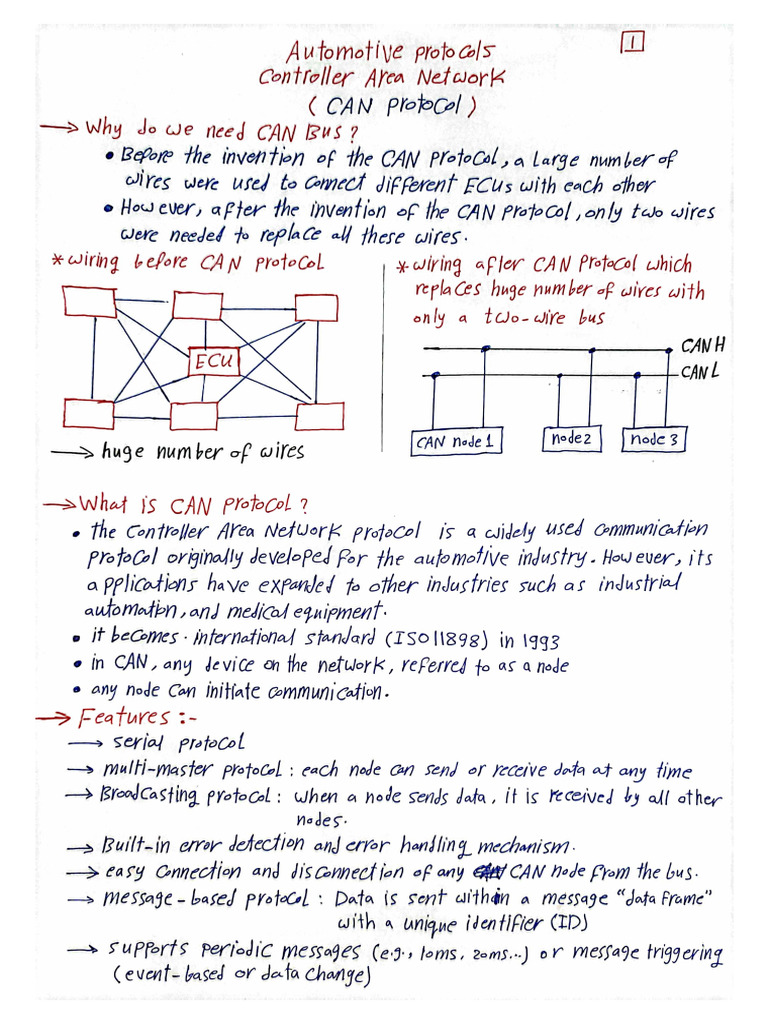 1
Automotive protocols
Controller Area Network
(CAN protocol)
→ Why do we need CAN BUS?
• Before the invention of the CAN protocol, a large number of
wires were used to connect different ECUs with each other
• However, after the invention of the CAN protocol, only two wires
were needed to replace all these wires.
* wiring before CAN protocol
ECU
→ huge number of wires
* wiring after CAN protocol which
replaces huge number of wires with
only a two-wire bus
CAN H
CAN L
CAN node1
node2
node 3
→ What is CAN protocol?
• the Controller Area Network protocol is a widely used communication
protocol originally developed for the automotive industry. However, its
applications have expanded to other industries such as industrial
automation, and medical equipment.
• it becomes international standard (ISO11898) in 1993
• in CAN, any device on the network, referred to as a node
• any node can initiate communication.
→ Features :-
→ serial protocol
→ multi-master protocol : each node can send or receive data at any time
→ Broadcasting protocol : when a node sends data, it is received by all other
nodes.
→ Built-in error detection and error handling mechanism.
→ easy connection and disconnection of any CAN node from the bus.
→ message-based protocol : Data is sent within a message "data frame"
with a unique identifier (ID)
→ supports periodic messages (e.g., 10ms, 20ms...) or message triggering
(event-based or data change)